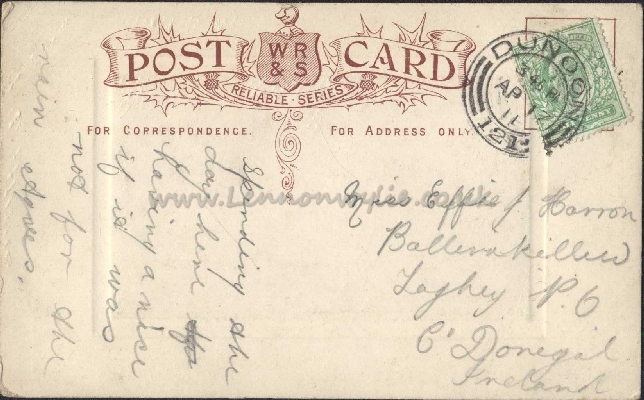 POST CARD
WR
& S
RELIABLE SERIES
FOR CORRESPONDENCE.
FOR ADDRESS ONLY.
DUNOON
AP 12
11
121
www.Lennonwylie.co.uk
Spending the
day here
having a nice
it is was
not for the
rain
Agnes.
Miss Effie J Harron
Ballinakillew
Laghey P.O
Co Donegal
Ireland